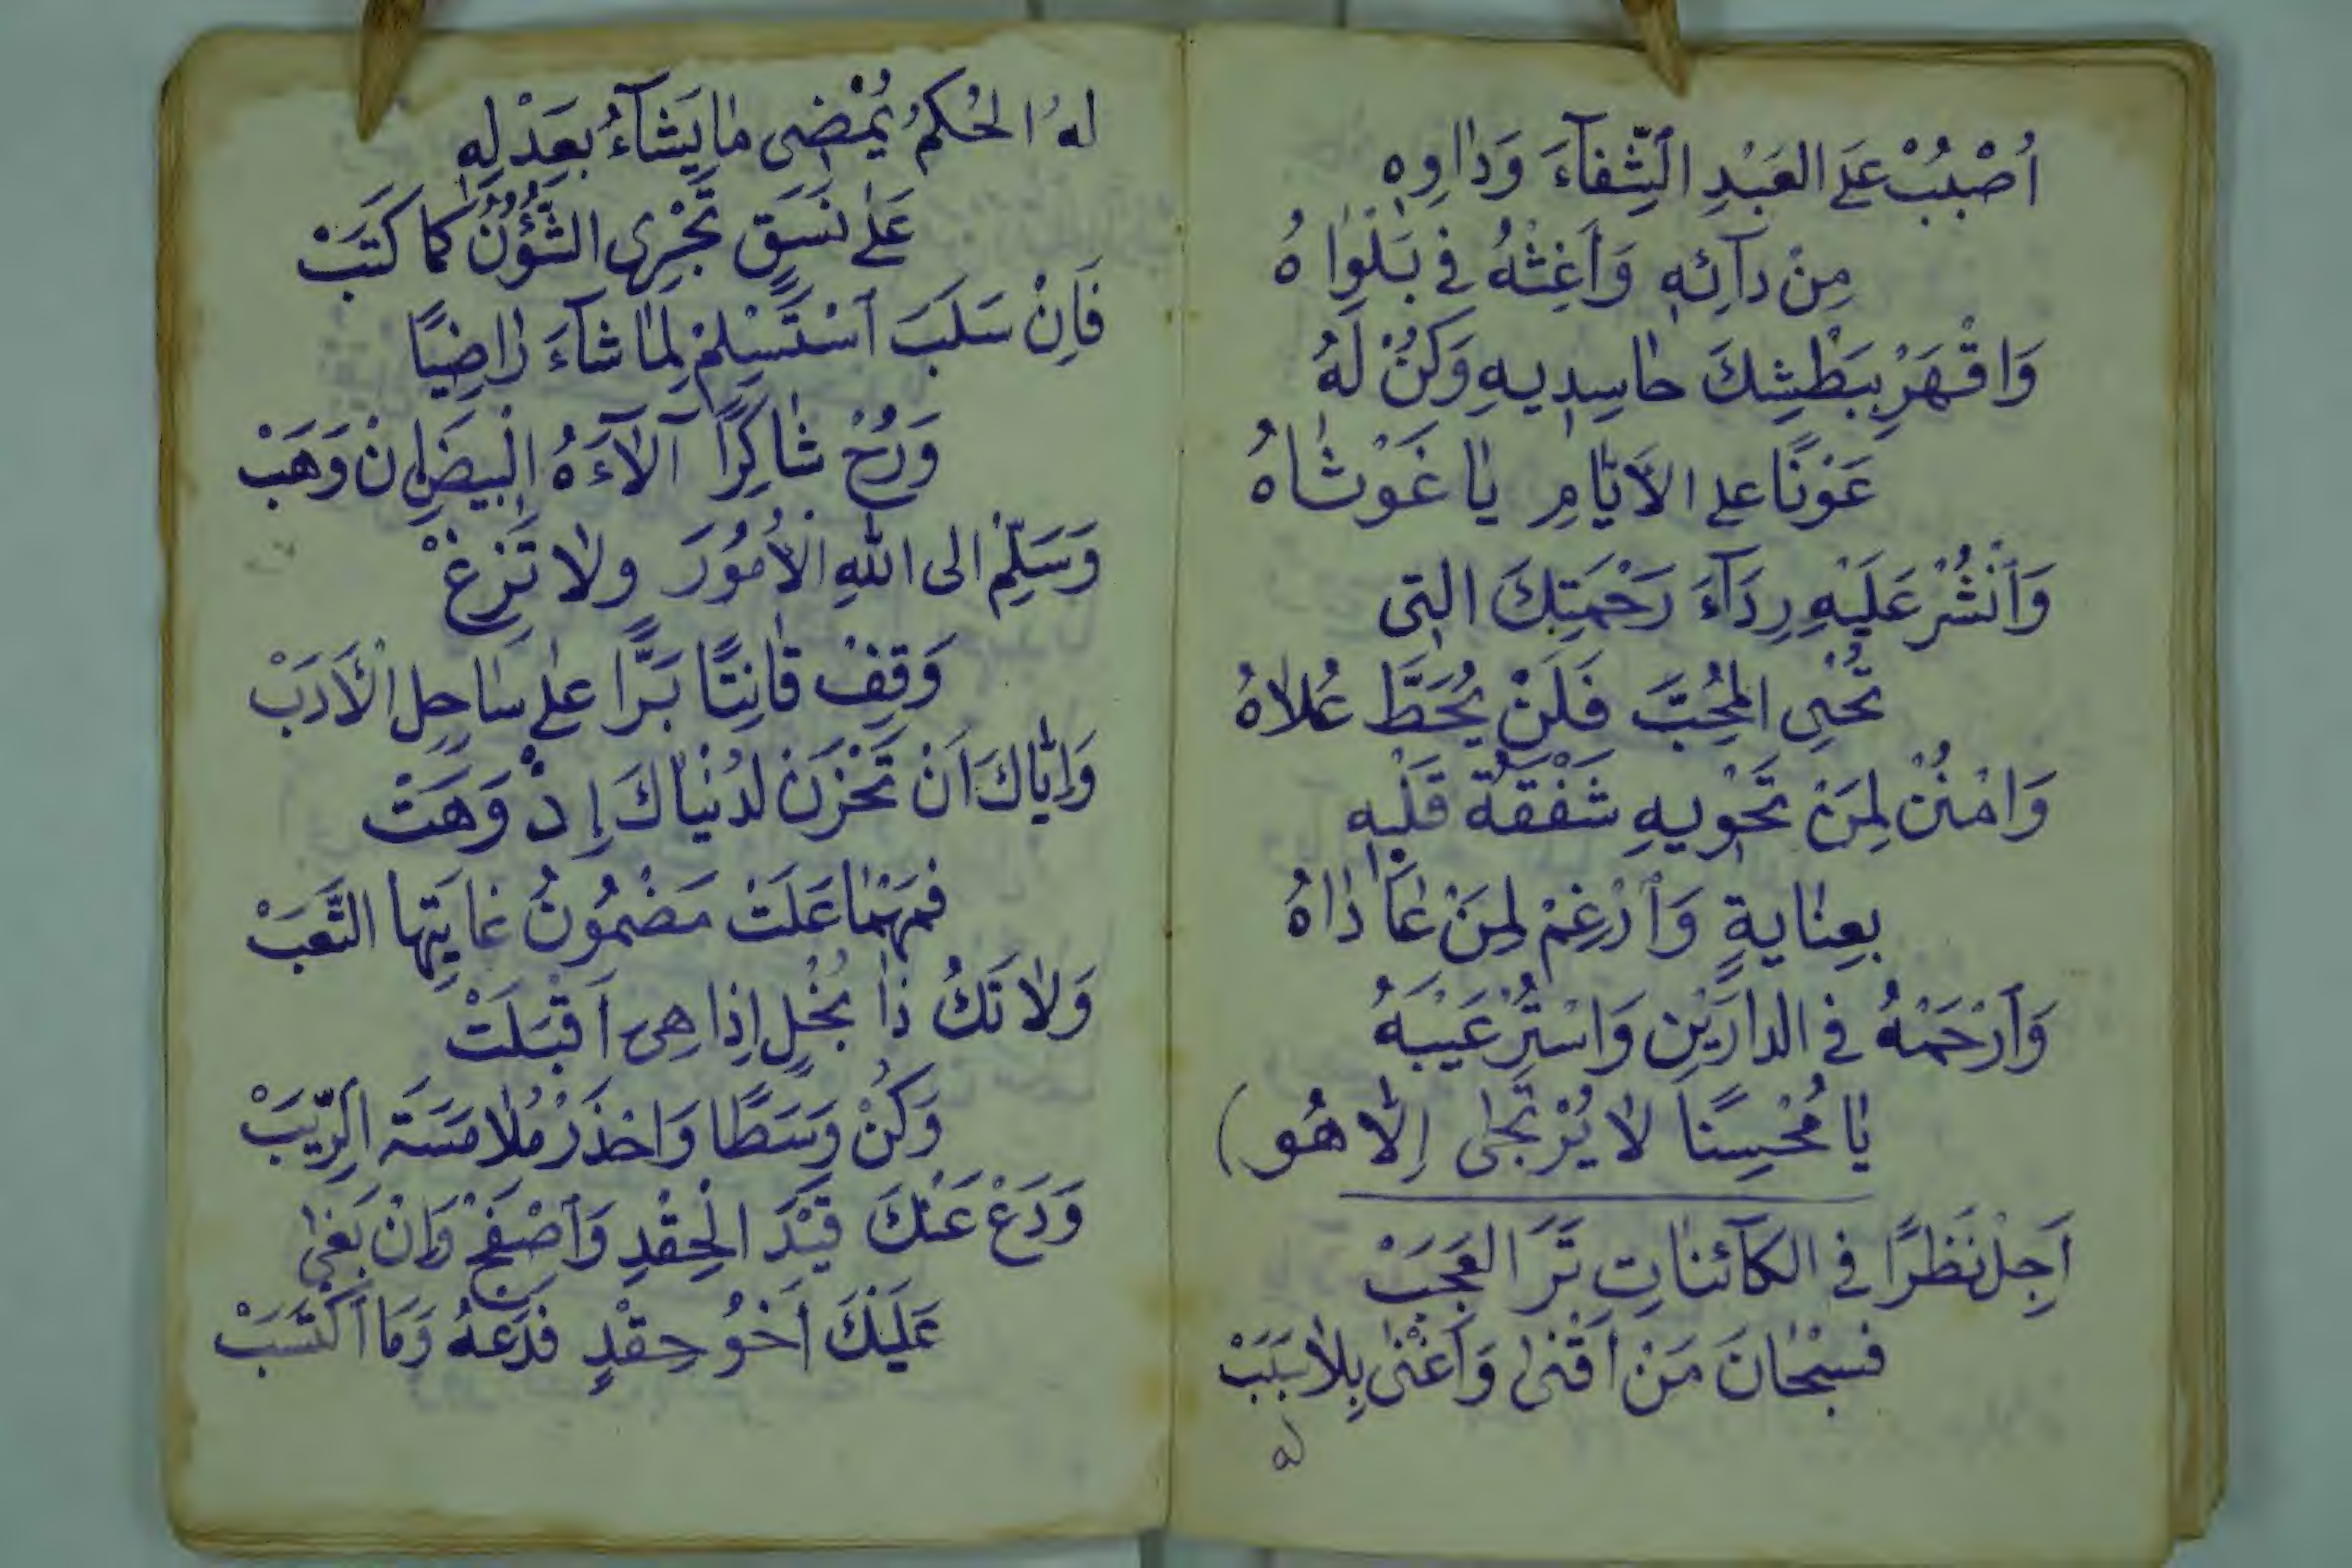 اُصْبُبْ عَلَى العَبْدِ الشِّفَآءَ وَدَاوِهِ
مِنْ دَآئِهِ وَاَغِثْهُ فِي بَلْوَاهُ
وَاقْهَرْ بِبَطْشِكَ حَاسِدِيهِ وَكُنْ لَهُ
عَوْنًا عَلى الاَيَّامِ يَا غَوْثَاهُ
وَاَنْشُرْ عَلَيْهِ رِدَآءَ رَحْمَتِكَ التِى
تُحْيِى المُحِبَّ فَلَنْ يُحَطَّ عُلاَهُ
وَامْنُنْ لِمَنْ تَحْوِيهِ شَفْقَةُ قَلْبِهِ
بِعِنَايةٍ وَاَرْغِمْ لِمَنْ عَادَاهُ
وَاَرْحَمْهُ فِي الدارَيْنِ وَاسْتُرْ عَيْبَهُ
يَا مُحْسِنًا لاَ يُرْتَجَى إلاَّ هُو)
اَجِلْ نَظَرًا فِي الكآئنَاتِ تَرَ العَجَبْ
فسُبْحَانَ مَنْ اَقْنَى وَاَغْنَى بِلاَ سَبَبْ
له
لهُ الحُكمُ يُمْضِى مَا يَشَآءُ بِعَدْلِهِ
عَلَى نَسَقٍ تَجْرِى الشُّؤُنُ كمَا كَتَبْ
فَاِنْ سَلَبَ اَسْتَسْلِمْ لِمَا شَآءَ رَاضِيًا
وَرُحْ شَاكِرًا آلآءَهُ البِيضَ اِنْ وَهَبْ
وَسَلِّمْ الى اللهِ الاُمُورَ ولاَ تَزِغْ
وَقِفْ قَانِتًا بَرًّا عَلى سَاحِلِ الاَدَبْ
وَاِيَّاكَ اَنْ تَحْزَنْ لدُنْيَاكَ إِذْ وَهَتْ
فمَهْمَا عَلَتْ مَضْمُونُ غايَتِها التَّعَبْ
وَلاَ تَكُ ذَا بُخْلٍ اِذا هِىَ اَقْبَلَتْ
وَكُنْ وَسَطًا وَاحْذَرْ مُلاَمَسَةَ الرِّيَبْ
وَدَعْ عَنْكَ قَيْدَ الحِقْدِ وَاَصْفَحْ وَاِنْ بَغَى
عَلَيْكَ اَخُو حِقْدٍ فدَعْهُ وَمَا اَكْتَسَبْ